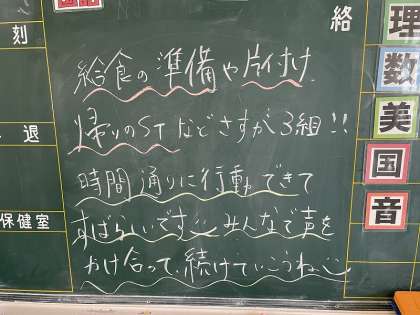 国語
絡
刻
退
保健室
給食の準備や片付け、
帰りのSTなどさすが3組!!
時間通りに行動できて
すばらしいです みんなで声を
かけ合って、続けていこうね
理
数
美
国
音